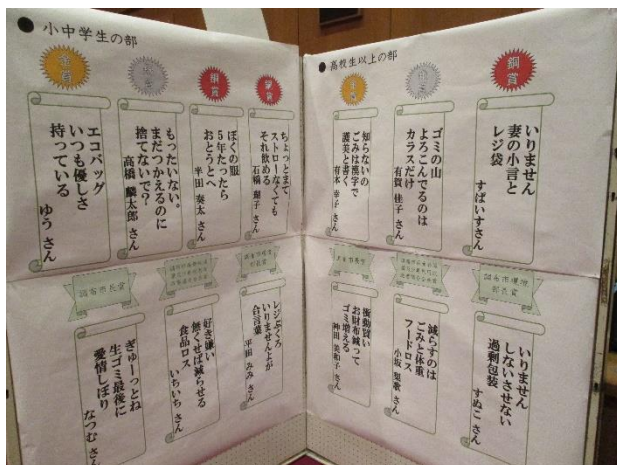 ● 小中学生の部
金賞
エコバッグ
いつも優しさ
持っている
ゆう さん
銀賞
もったいない。
まだつかえるのに
捨てないで?
高橋 麟太郎 さん
銅賞
ぼくの服
5年たったら
おとうとへ
半田 奏太 さん
銅賞
ちょっとまて
ストローなくても
それ飲める
石橋 さん
調布市長賞
ぎゅーっとね
生ゴミ最後に
愛情しぼり
なつむ さん
好き嫌い
無くせば減らせる
食品ロス
いちいち さん
調布市環境
部長賞
レジぶくろ
いりませんよが
合言葉
平田 みみ さん
● 高校生以上の部
金賞
知らないの
ごみは漢字で
護美と書く
有本 幸子 さん
銀賞
ゴミの山
よろこんでるのは
カラスだけ
有賀 佳子 さん
銅賞
いりません
妻の小言と
レジ袋
すぱいすさん
調布市長賞
衝動買い
お財布減って
ゴミ増える
神田 美和子 さん
減らすのは
ごみと体重
フードロス
小坂 さん
調布市環境
部長賞
いりません
しないさせない
過剰包装
すぬこ さん